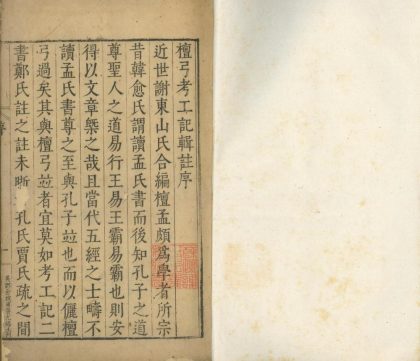 檀弓考工記輯註序
近世謝東山氏合編檀孟頗爲學者所宗
昔韓愈氏謂讀孟氏書而後知孔子之道
尊聖人之道易行王易王霸易霸也則安
得以文章槩之哉且當代五經之士疇不
讀孟氏書尊之至與孔子竝也而以儷檀
弓過矣其與檀弓竝者宜莫如考工記二
書鄭氏註之註未晰 孔氏賈氏疏之間
序
一